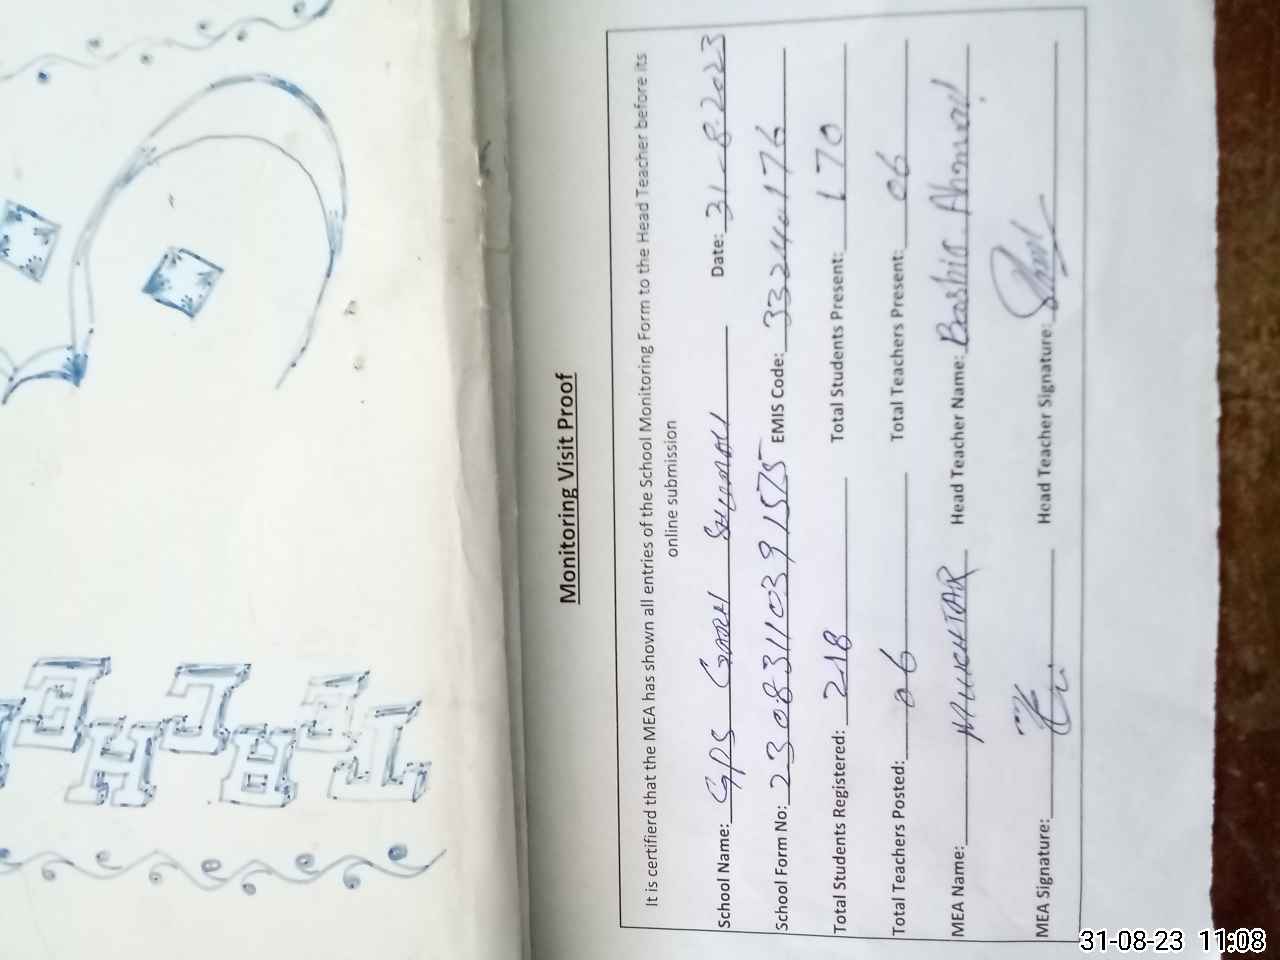 Monitoring Visit Proof
It is certifierd that the MEA has shown all entries of the School Monitoring Form to the Head Teacher before its
online submission
School Name: GPS Garhi Date: 31-8-2023
School Form No: 23083110391575 EMIS Code: 33240176
Total Students Registered: 218 Total Students Present: 170
Total Teachers Posted: 06 Total Teachers Present: 06
MEA Name: MUKHTAR Head Teacher Name: Bashir Ahmad
MEA Signature: Head Teacher Signature:
31-08-23 11:08